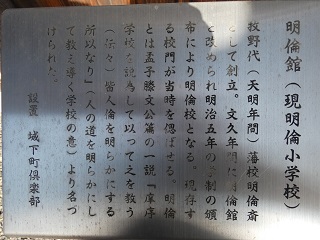 明倫館(現明倫小学校)
牧野代(天明年間)藩校明倫斎
として創立。文久年間に明倫館
と改められ明治五年の学制の頒
布により明倫校となる。現存す
る校門が当時を偲ばせる。明倫
とは孟子滕文公篇の一説「庠序
学校を設為して以って之を教う
(仔々)皆人倫を明らかにする
所以なり」(人の道を明らかにし
て教え導く学校の意)より名づ
けられた。
設置 城下町倶楽部